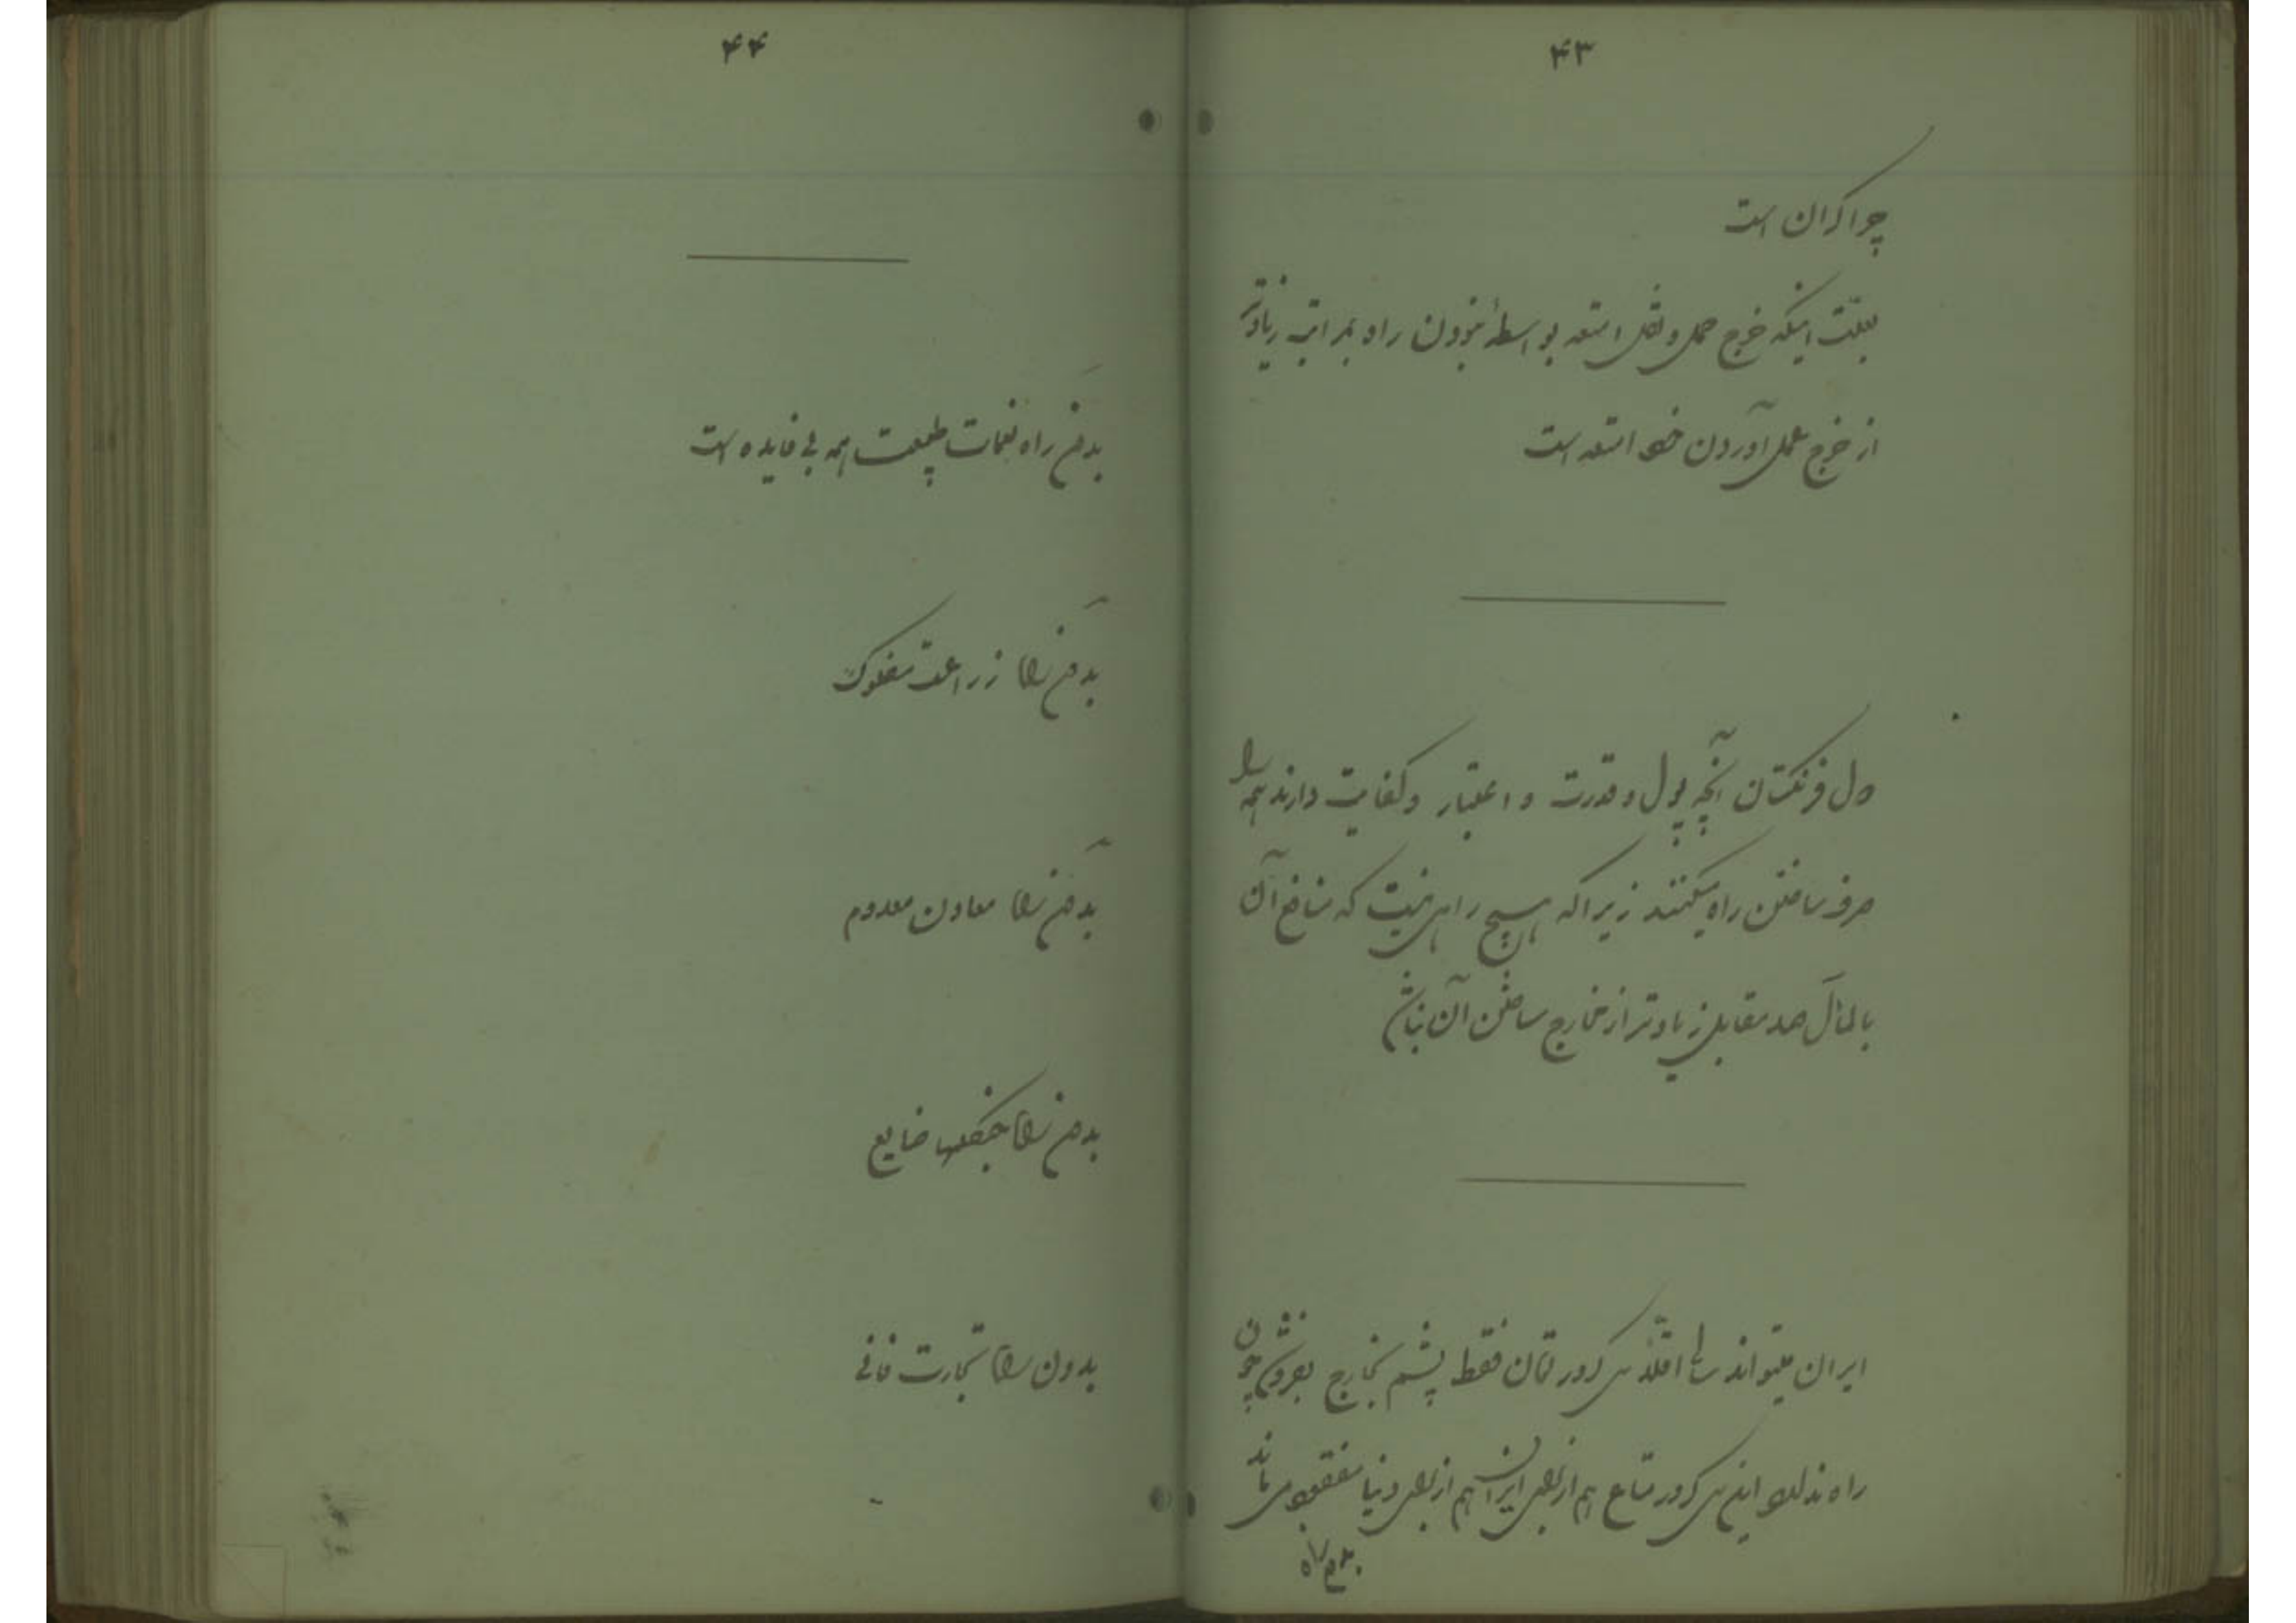 ۴۳
چرا گران است
بعلّت اینکه خرج حمل و نقل امتعه بواسطهٔ نبودن راه بمراتب زیادتر
از خرج بعمل آوردن خود امتعه است
دول فرنگستان آنچه پول و قدرت و اعتبار و کفایت دارند همه را
صرف ساختن راه میکنند زیرا که هیچ راهی نیست که منافع آن
بالمآل صد مقابل زیادتر از مخارج ساختن آن نباشد
ایران میتواند سالی اقلّا سی کرور تومان فقط پشم بخارج بفروشد چون
راه ندارد این سی کرور متاع هم از برای ایران هم از برای دنیا مفقود می ماند
بدون راه
۴۴
بدون راه نعمات طبیعت همه بی فایده است
بدون راه زراعت مفلوک
بدون راه معادن معدوم
بدون راه جنگلها ضایع
بدون راه تجارت فانی